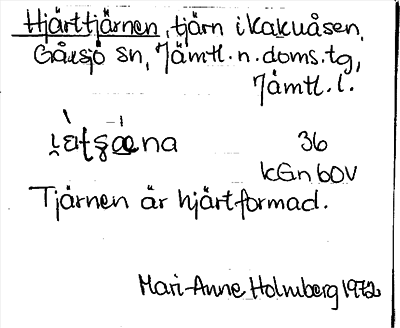 Hjärttjärnen, tjärn i Kakuåsen,
Gåxsjö sn, Jämtl. n. doms. tg,
Jämtl. l.
36
kGn 60V
Tjärnen är hjärtformad.
Mari-Anne Holmberg 1972